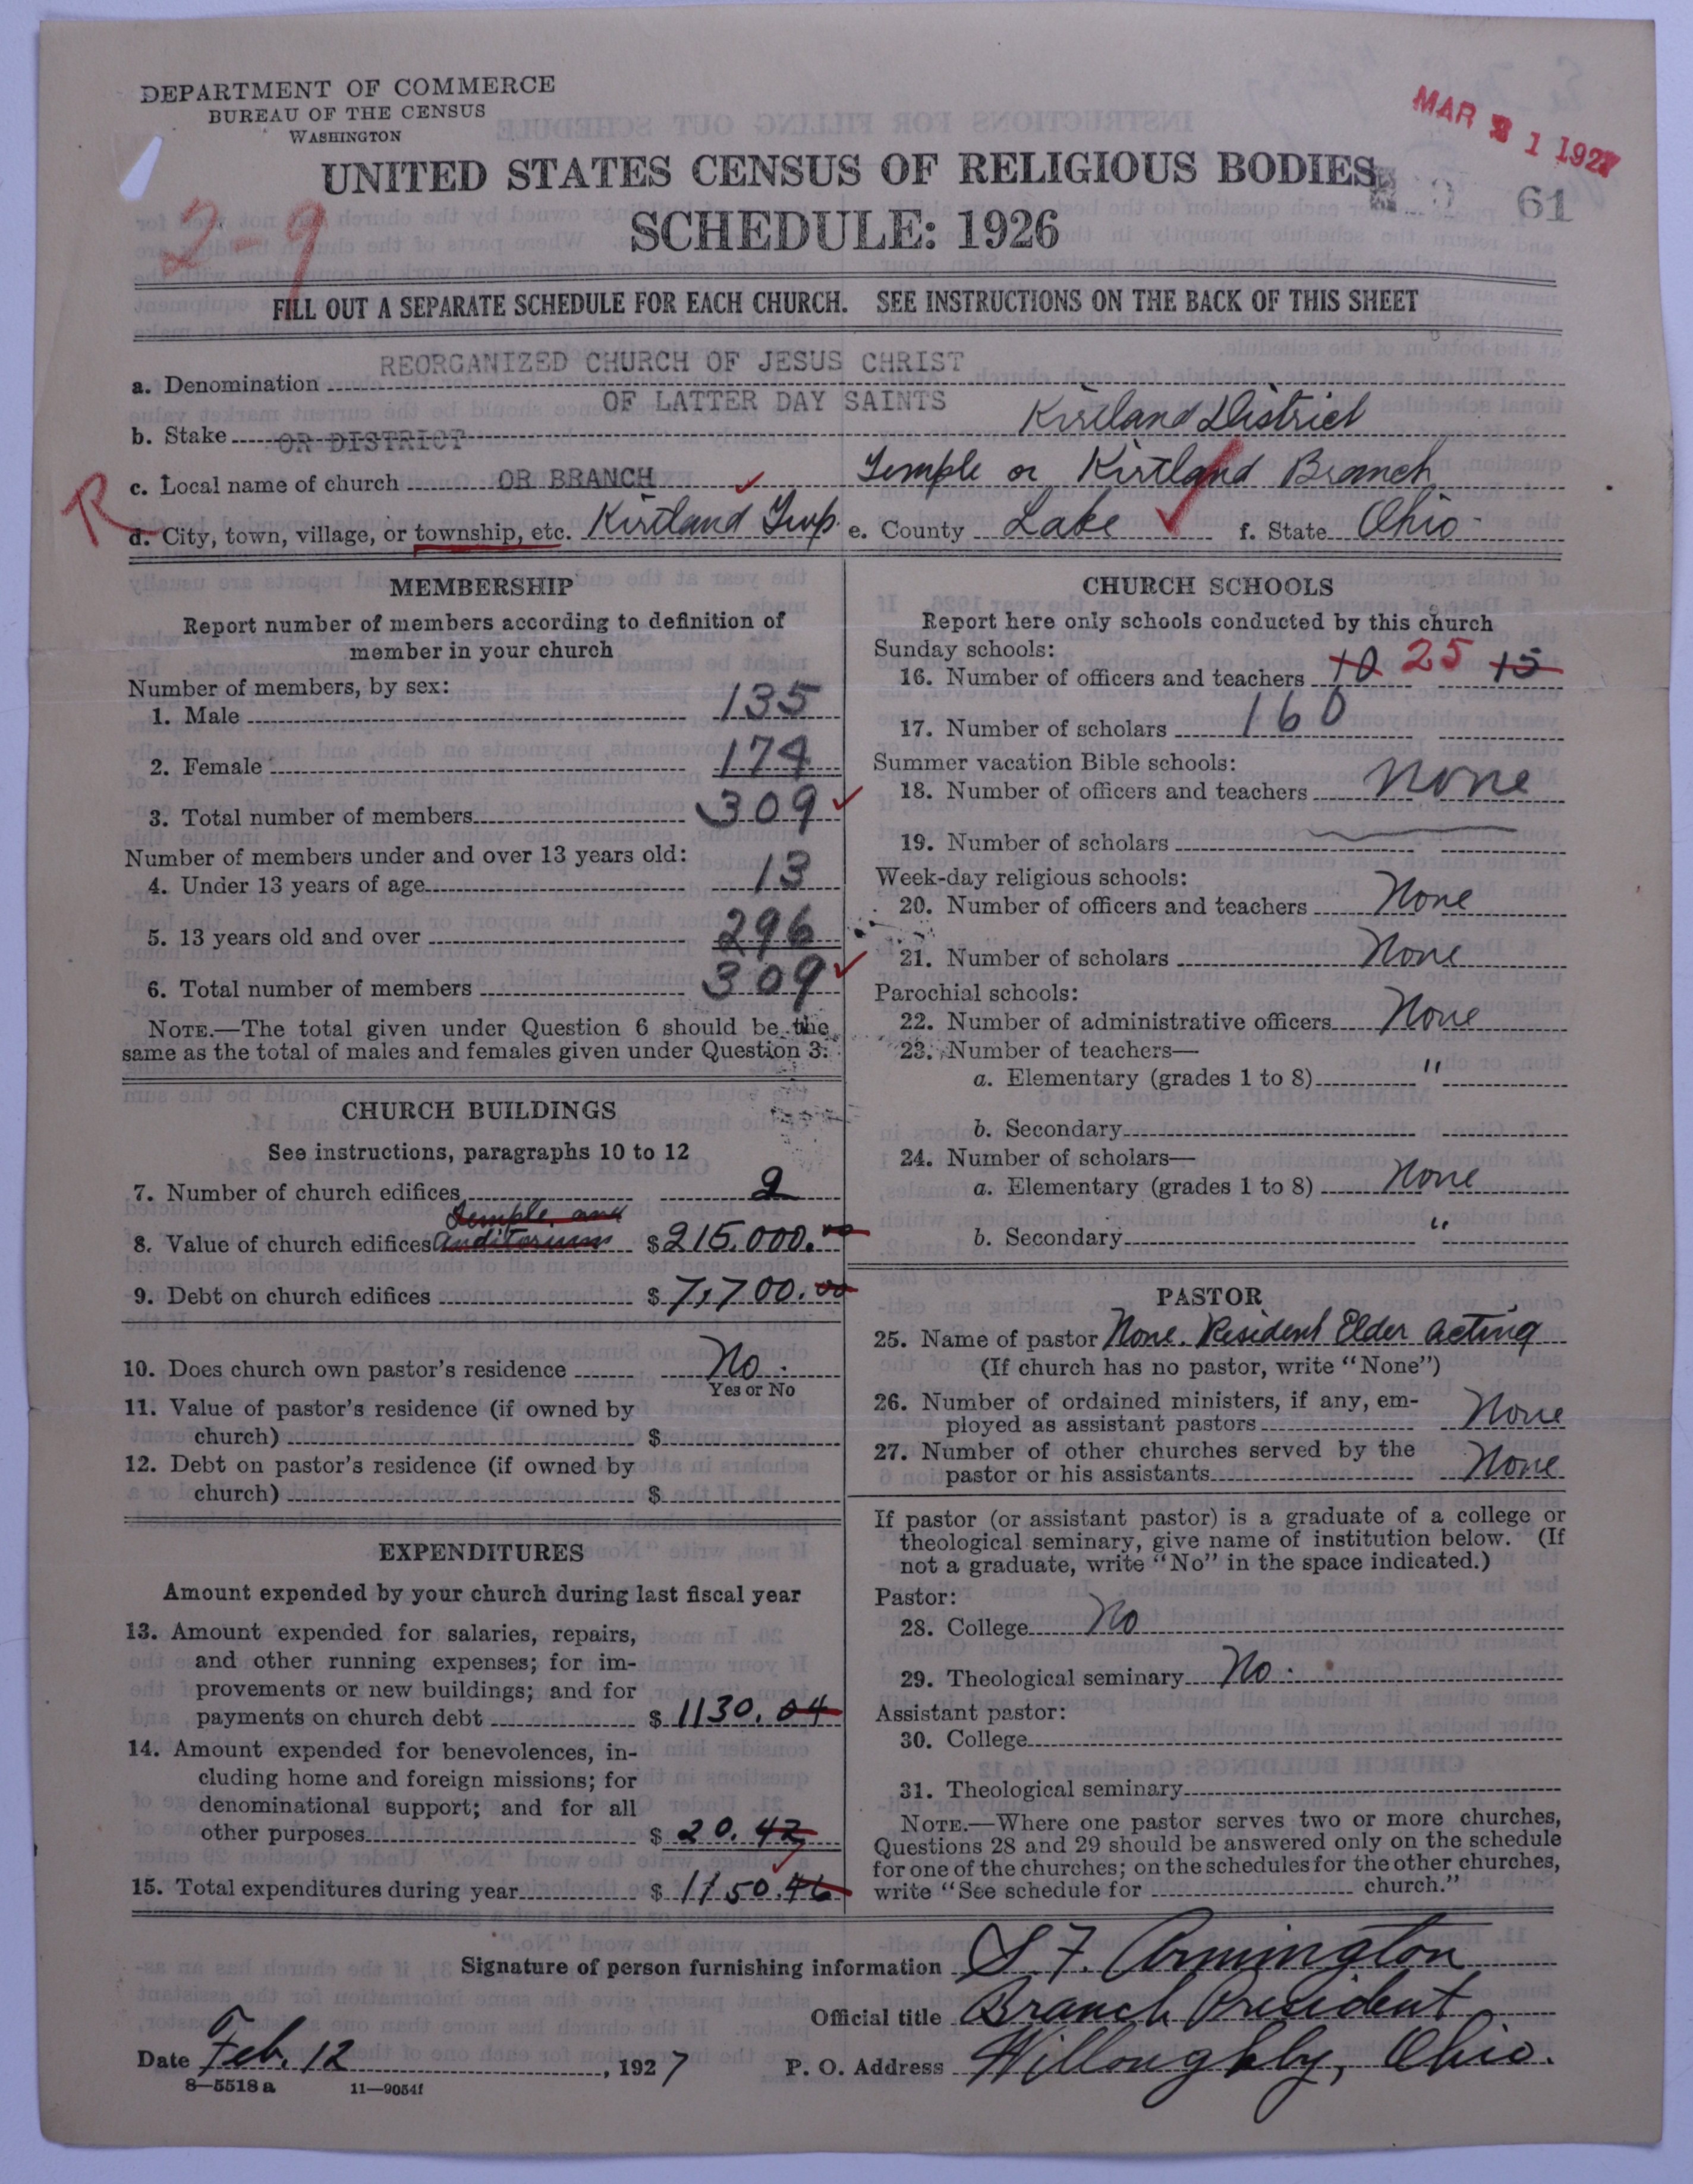 DEPARTMENT OF COMMERCE
BUREAU OF THE CENSUS
WASHINGTON
MAR 31 1927
UNITED STATES CENSUS OF RELIGIOUS BODIES
61
2-9
SCHEDULE: 1926
FILL OUT A SEPARATE SCHEDULE FOR EACH CHURCH. SEE INSTRUCTIONS ON THE BACK OF THIS SHEET
REORGANIZED CHURCH OF JESUS CHRIST
a. Denomination
OF LATTER DAY SAINTS
b. Stake OR DISTRICT Kirtland District
R
c. Local name of church OR BRANCH Temple or Kirtland Branch
d. City, town, village, or township, etc. Kirtland Twp. e. County Lake f. State Ohio
MEMBERSHIP
Report number of members according to definition of
member in your church
Number of members, by sex:
1. Male 135
2. Female 174
3. Total number of members 309
Number of members under and over 13 years old:
4. Under 13 years of age 13
5. 13 years old and over 296
6. Total number of members 309
NOTE.—The total given under Question 6 should be the
same as the total of males and females given under Question 3.
CHURCH BUILDINGS
See instructions, paragraphs 10 to 12
7. Number of church edifices 2
Temple and
8. Value of church edifices Auditorium $215,000.00
9. Debt on church edifices $7,700.00
10. Does church own pastor's residence No.
Yes or No
11. Value of pastor's residence (if owned by
church) $
12. Debt on pastor's residence (if owned by
church) $
EXPENDITURES
Amount expended by your church during last fiscal year
13. Amount expended for salaries, repairs,
and other running expenses; for im-
provements or new buildings; and for
payments on church debt $1130.04
14. Amount expended for benevolences, in-
cluding home and foreign missions; for
denominational support; and for all
other purposes $20.42
15. Total expenditures during year $1150.46
CHURCH SCHOOLS
Report here only schools conducted by this church
Sunday schools:
16. Number of officers and teachers 10 25 15
17. Number of scholars 160
Summer vacation Bible schools:
18. Number of officers and teachers None
19. Number of scholars
Week-day religious schools:
20. Number of officers and teachers None
21. Number of scholars None
Parochial schools:
22. Number of administrative officers None
23. Number of teachers—
a. Elementary (grades 1 to 8) "
b. Secondary
24. Number of scholars—
a. Elementary (grades 1 to 8) None
b. Secondary "
PASTOR
25. Name of pastor None. Resident Elder acting
(If church has no pastor, write "None")
26. Number of ordained ministers, if any, em-
ployed as assistant pastors None
27. Number of other churches served by the
pastor or his assistants None
If pastor (or assistant pastor) is a graduate of a college or
theological seminary, give name of institution below. (If
not a graduate, write "No" in the space indicated.)
Pastor:
28. College No
29. Theological seminary No.
Assistant pastor:
30. College
31. Theological seminary
NOTE.—Where one pastor serves two or more churches,
Questions 28 and 29 should be answered only on the schedule
for one of the churches; on the schedules for the other churches,
write "See schedule for church."
Signature of person furnishing information S. F. Armington
Official title Branch President
Date Feb. 12, 1927 P. O. Address Willoughby, Ohio.
8—5518 a 11—9054f